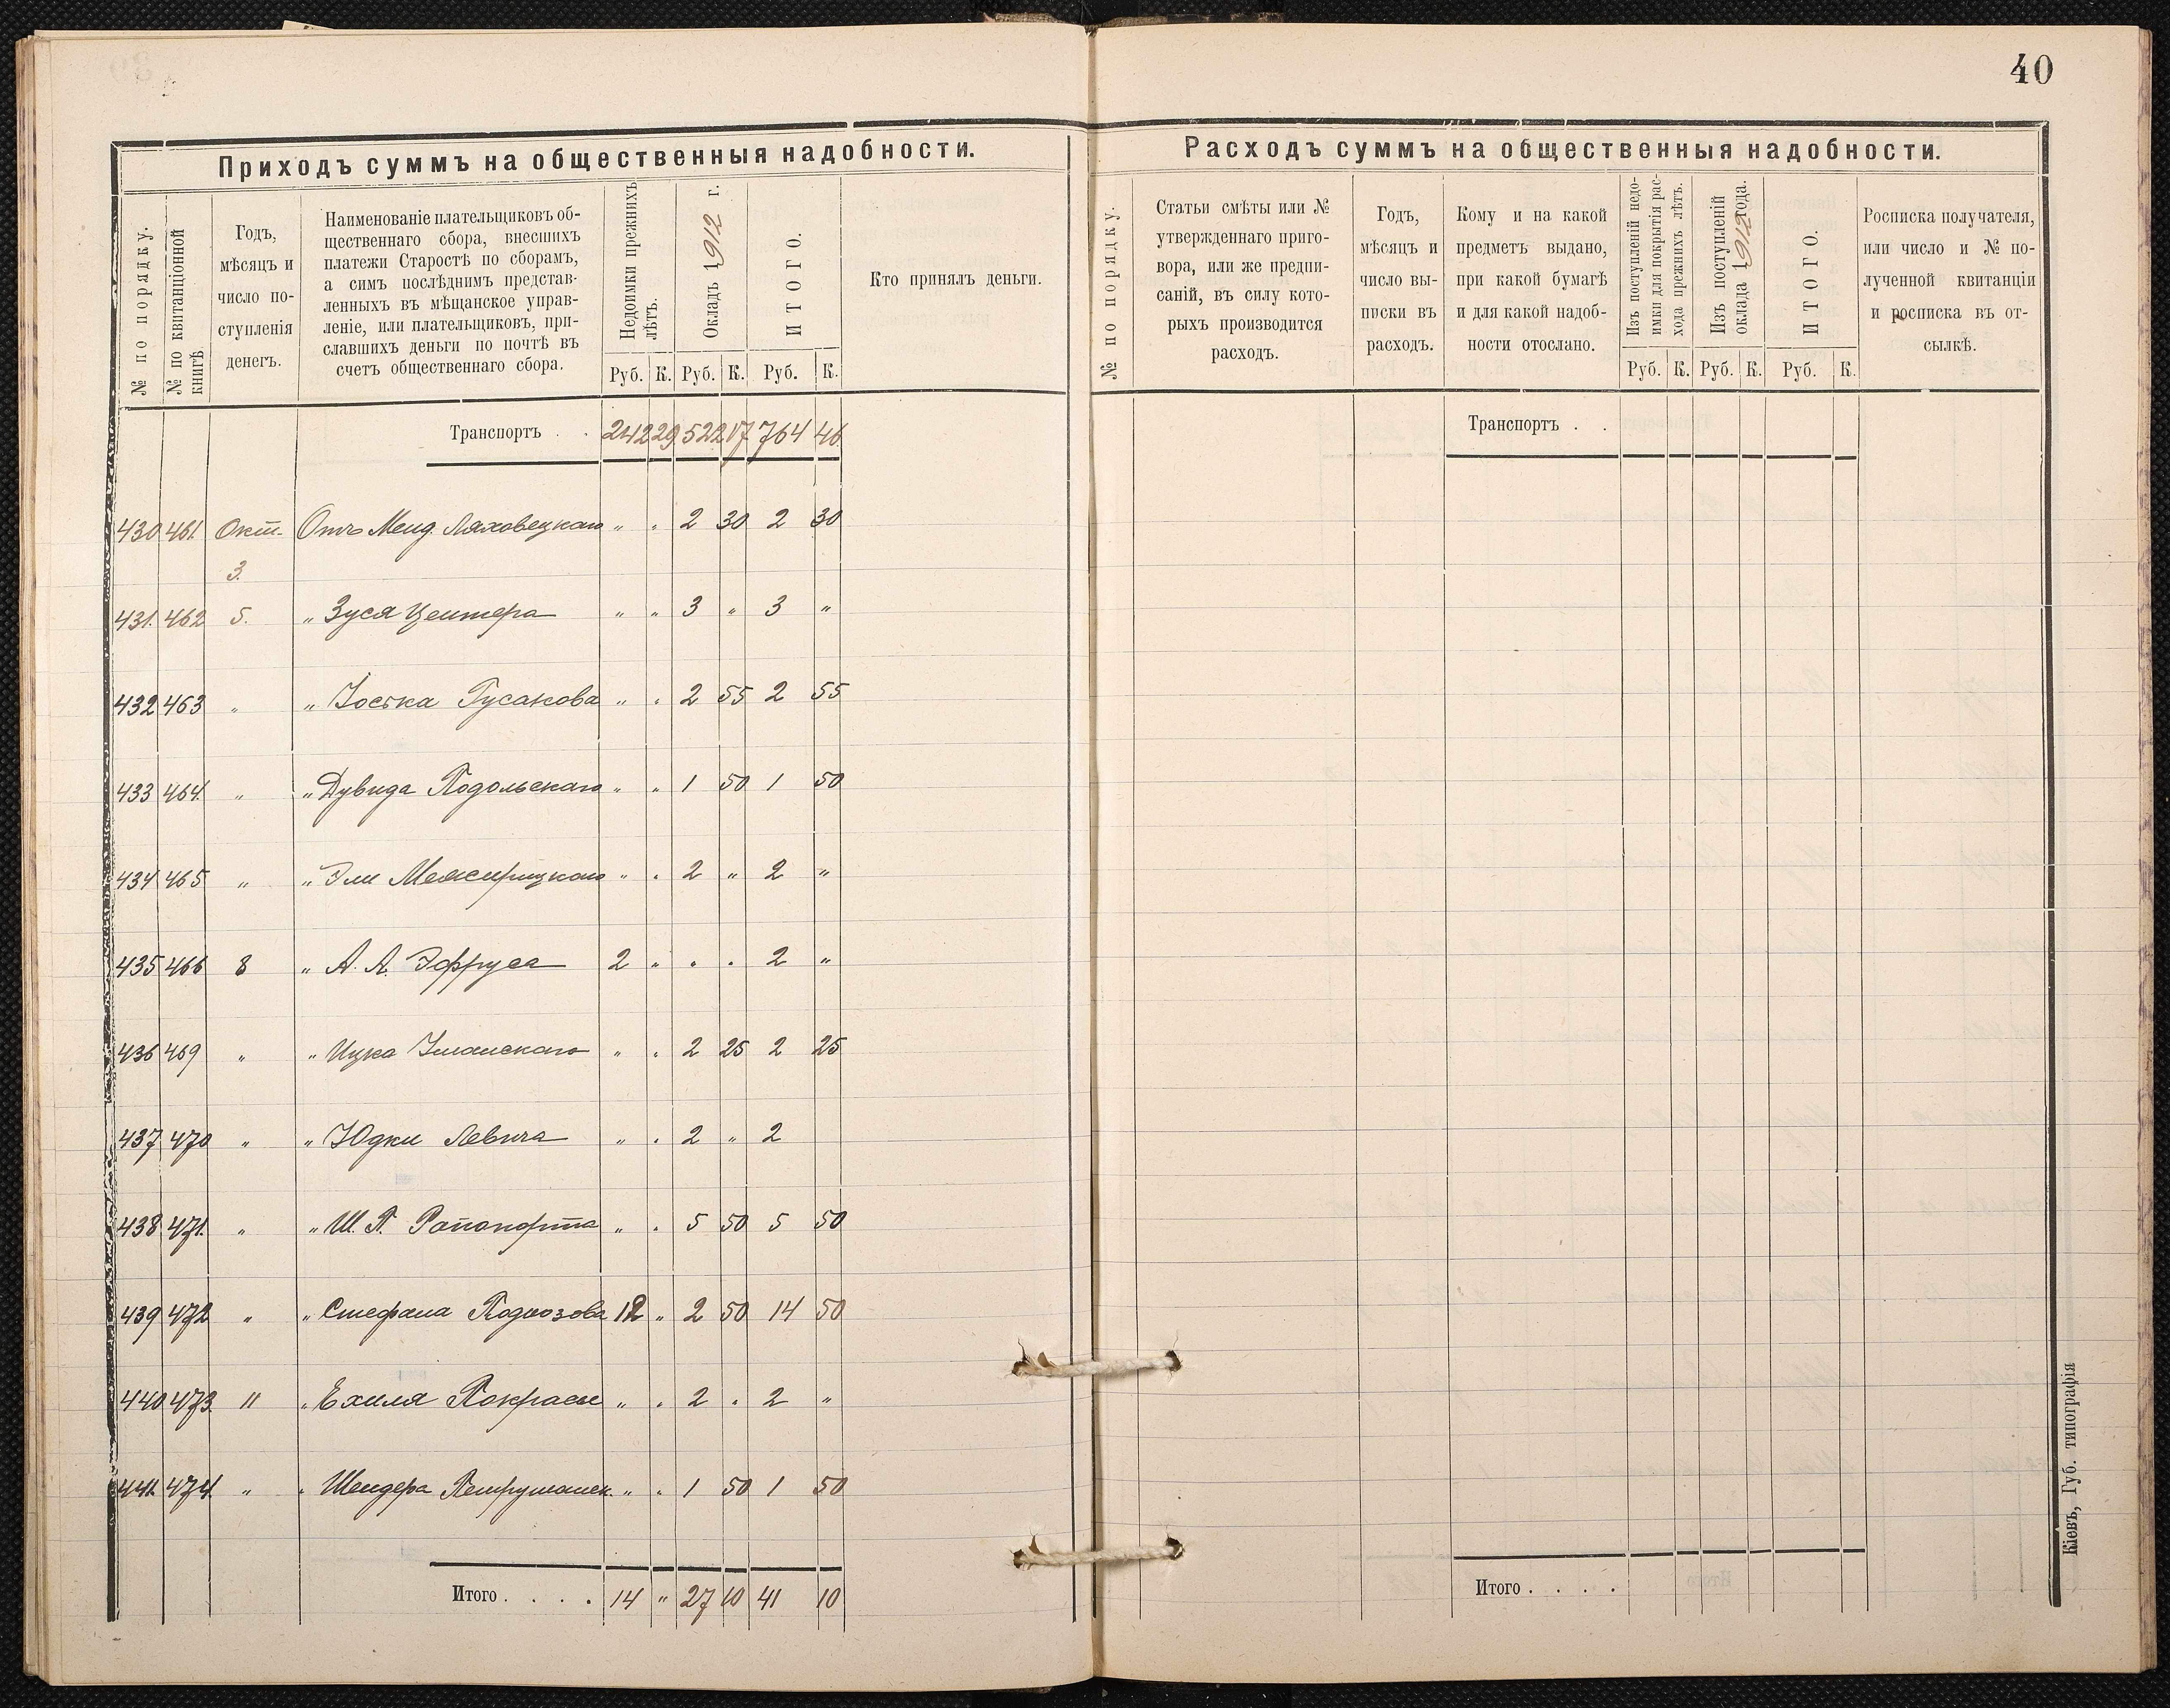 40
Приходъ суммъ на общественныя надобности.
№ по порядку.
№ по квитанціонной книгѣ
Годъ,
мѣсяцъ и
число по-
ступленія
денегъ.
Наименованіе плательщиковъ об-
щественнаго сбора, внесшихъ
платежи Старостѣ по сборамъ,
а симъ послѣднимъ представ-
ленныхъ въ мѣщанское управ-
леніе, или плательщиковъ, при-
славшихъ деньги по почтѣ въ
счетъ общественнаго сбора.
Недоимки прежнихъ
лѣтъ.
Окладъ 1912 г.
ИТОГО.
Руб. К. Руб. К. Руб. К.
Кто принялъ деньги.
Транспортъ . . 242 29 522 17 764 46
430 461. Окт. Отъ Менд. Ляховецкаго " " 2 30 2 30
3.
431. 462 5. " Зуся Центера " " 3 " 3 "
432 463 " " Іоська Гусакова " " 2 55 2 55
433 464. " " Дувида Подольскаго " " 1 50 1 50
434 465 " " Эли Межирицкаго " " 2 " 2 "
435 466 8 " А. А. Эфруса 2 " " " 2 "
436 469 " " Ицка Уманскаго " " 2 25 2 25
437 470 " " Юдки Левича " " 2 " 2
438 471. " " Ш. П. Рапопорта " " 5 50 5 50
439 472 " " Стефана Подвозова 12 " 2 50 14 50
440 473. 11 " Ехиля Покрасы " " 2 " 2 "
441. 474. " " Шендера Петрушанск. " " 1 50 1 50
Итого . . . . 14 " 27 10 41 10
Расходъ суммъ на общественныя надобности.
№ по порядку.
Статьи смѣты или №
утвержденнаго приго-
вора, или же предпи-
саній, въ силу кото-
рыхъ производится
расходъ.
Годъ,
мѣсяцъ и
число вы-
писки въ
расходъ.
Кому и на какой
предметъ выдано,
при какой бумагѣ
и для какой надоб-
ности отослано.
Изъ поступленій недо-
имки для покрытія рас-
хода прежнихъ лѣтъ.
Изъ поступленій
оклада 1912 года.
ИТОГО.
Руб. К. Руб. К. Руб. К.
Росписка получателя,
или число и № по-
лученной квитанціи
и росписка въ от-
сылкѣ.
Транспортъ . .
Итого . . . .
Кіевъ, Губ. типографія